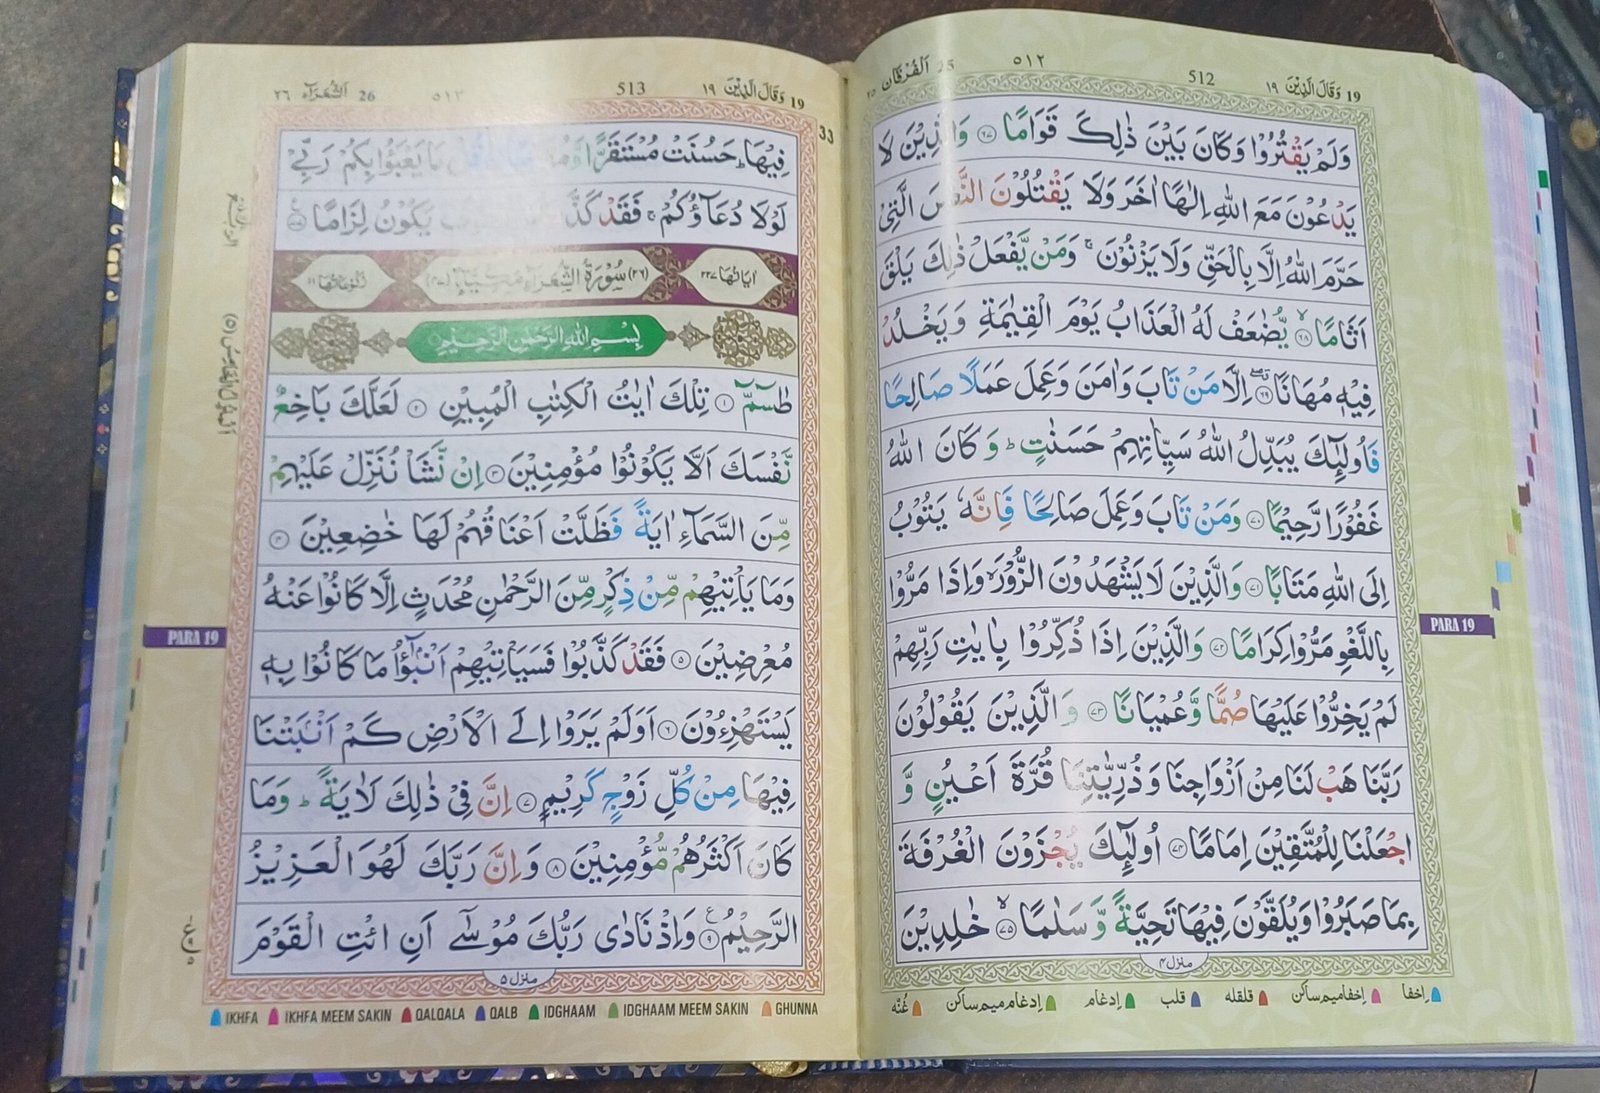 ١٩ وَقَالَ الَّذِيْنَ 19
512
٥١٢
اَلْفُرْقَان 25
٢٥
وَلَمْ يَقْتُرُوْا وَكَانَ بَيْنَ ذٰلِكَ قَوَامًا ﴿٦٧﴾ وَالَّذِيْنَ لَا
يَدْعُوْنَ مَعَ اللّٰهِ اِلٰهًا اٰخَرَ وَلَا يَقْتُلُوْنَ النَّفْسَ الَّتِيْ
حَرَّمَ اللّٰهُ اِلَّا بِالْحَقِّ وَلَا يَزْنُوْنَ ۚ وَمَنْ يَّفْعَلْ ذٰلِكَ يَلْقَ
اَثَامًا ﴿٦٨﴾ۙ يُّضٰعَفْ لَهُ الْعَذَابُ يَوْمَ الْقِيٰمَةِ وَيَخْلُدْ
فِيْهٖ مُهَانًا ﴿٦٩﴾ اِلَّا مَنْ تَابَ وَاٰمَنَ وَعَمِلَ عَمَلًا صَالِحًا
فَاُولٰٓئِكَ يُبَدِّلُ اللّٰهُ سَيِّاٰتِهِمْ حَسَنٰتٍ ؕ وَكَانَ اللّٰهُ
غَفُوْرًا رَّحِيْمًا ﴿٧٠﴾ وَمَنْ تَابَ وَعَمِلَ صَالِحًا فَاِنَّهٗ يَتُوْبُ
اِلَى اللّٰهِ مَتَابًا ﴿٧١﴾ وَالَّذِيْنَ لَا يَشْهَدُوْنَ الزُّوْرَ ۙ وَاِذَا مَرُّوْا
بِاللَّغْوِ مَرُّوْا كِرَامًا ﴿٧٢﴾ وَالَّذِيْنَ اِذَا ذُكِّرُوْا بِاٰيٰتِ رَبِّهِمْ
لَمْ يَخِرُّوْا عَلَيْهَا صُمًّا وَّعُمْيَانًا ﴿٧٣﴾ وَالَّذِيْنَ يَقُوْلُوْنَ
رَبَّنَا هَبْ لَنَا مِنْ اَزْوَاجِنَا وَذُرِّيّٰتِنَا قُرَّةَ اَعْيُنٍ وَّ
اجْعَلْنَا لِلْمُتَّقِيْنَ اِمَامًا ﴿٧٤﴾ اُولٰٓئِكَ يُجْزَوْنَ الْغُرْفَةَ
بِمَا صَبَرُوْا وَيُلَقَّوْنَ فِيْهَا تَحِيَّةً وَّسَلٰمًا ﴿٧٥﴾ۙ خٰلِدِيْنَ
منزل ٤
PARA 19
اِخفا اِخفامیم ساکن قلقله قلب اِدغام اِدغام میم ساکن غُنّه
١٩ وَقَالَ الَّذِيْنَ 19
513
٥١٣
٢٦ اَلشُّعَرَآء 26
33
فِيْهَا ؕ حَسُنَتْ مُسْتَقَرًّا وَّمُقَامًا قُلْ مَا يَعْبَؤُا بِكُمْ رَبِّيْ
لَوْلَا دُعَآؤُكُمْ ۚ فَقَدْ كَذَّبْتُمْ فَسَوْفَ يَكُوْنُ لِزَامًا ﴿٧٧﴾
اٰيَاتُهَا ٢٢٧ (٢٦) سُوْرَةُ الشُّعَرَآءِ مَكِّيَّةٌ (٤٧) رُكُوْعَاتُهَا ١١
بِسْمِ اللّٰهِ الرَّحْمٰنِ الرَّحِيْمِ
طٰسٓمّٓ ﴿١﴾ تِلْكَ اٰيٰتُ الْكِتٰبِ الْمُبِيْنِ ﴿٢﴾ لَعَلَّكَ بَاخِعٌ
نَّفْسَكَ اَلَّا يَكُوْنُوْا مُؤْمِنِيْنَ ﴿٣﴾ اِنْ نَّشَاْ نُنَزِّلْ عَلَيْهِمْ
مِّنَ السَّمَآءِ اٰيَةً فَظَلَّتْ اَعْنَاقُهُمْ لَهَا خٰضِعِيْنَ ﴿٤﴾
وَمَا يَاْتِيْهِمْ مِّنْ ذِكْرٍ مِّنَ الرَّحْمٰنِ مُحْدَثٍ اِلَّا كَانُوْا عَنْهُ
مُعْرِضِيْنَ ﴿٥﴾ فَقَدْ كَذَّبُوْا فَسَيَاْتِيْهِمْ اَنْۢبٰٓؤُا مَا كَانُوْا بِهٖ
يَسْتَهْزِءُوْنَ ﴿٦﴾ اَوَلَمْ يَرَوْا اِلَى الْاَرْضِ كَمْ اَنْۢبَتْنَا
فِيْهَا مِنْ كُلِّ زَوْجٍ كَرِيْمٍ ﴿٧﴾ اِنَّ فِيْ ذٰلِكَ لَاٰيَةً ؕ وَمَا
كَانَ اَكْثَرُهُمْ مُّؤْمِنِيْنَ ﴿٨﴾ وَاِنَّ رَبَّكَ لَهُوَ الْعَزِيْزُ
الرَّحِيْمُ ﴿٩﴾ وَاِذْ نَادٰى رَبُّكَ مُوْسٰٓى اَنِ ائْتِ الْقَوْمَ
منزل ٥
PARA 19
اَلْمَنْزِلُ الْخَامِسُ (٥)
IKHFA IKHFA MEEM SAKIN QALQALA QALB IDGHAAM IDGHAAM MEEM SAKIN GHUNNA